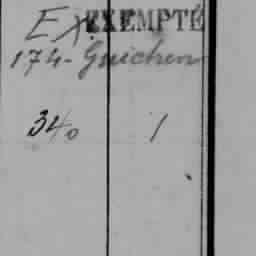 Ex. EXEMPTÉ
174 - Guichen
340 1